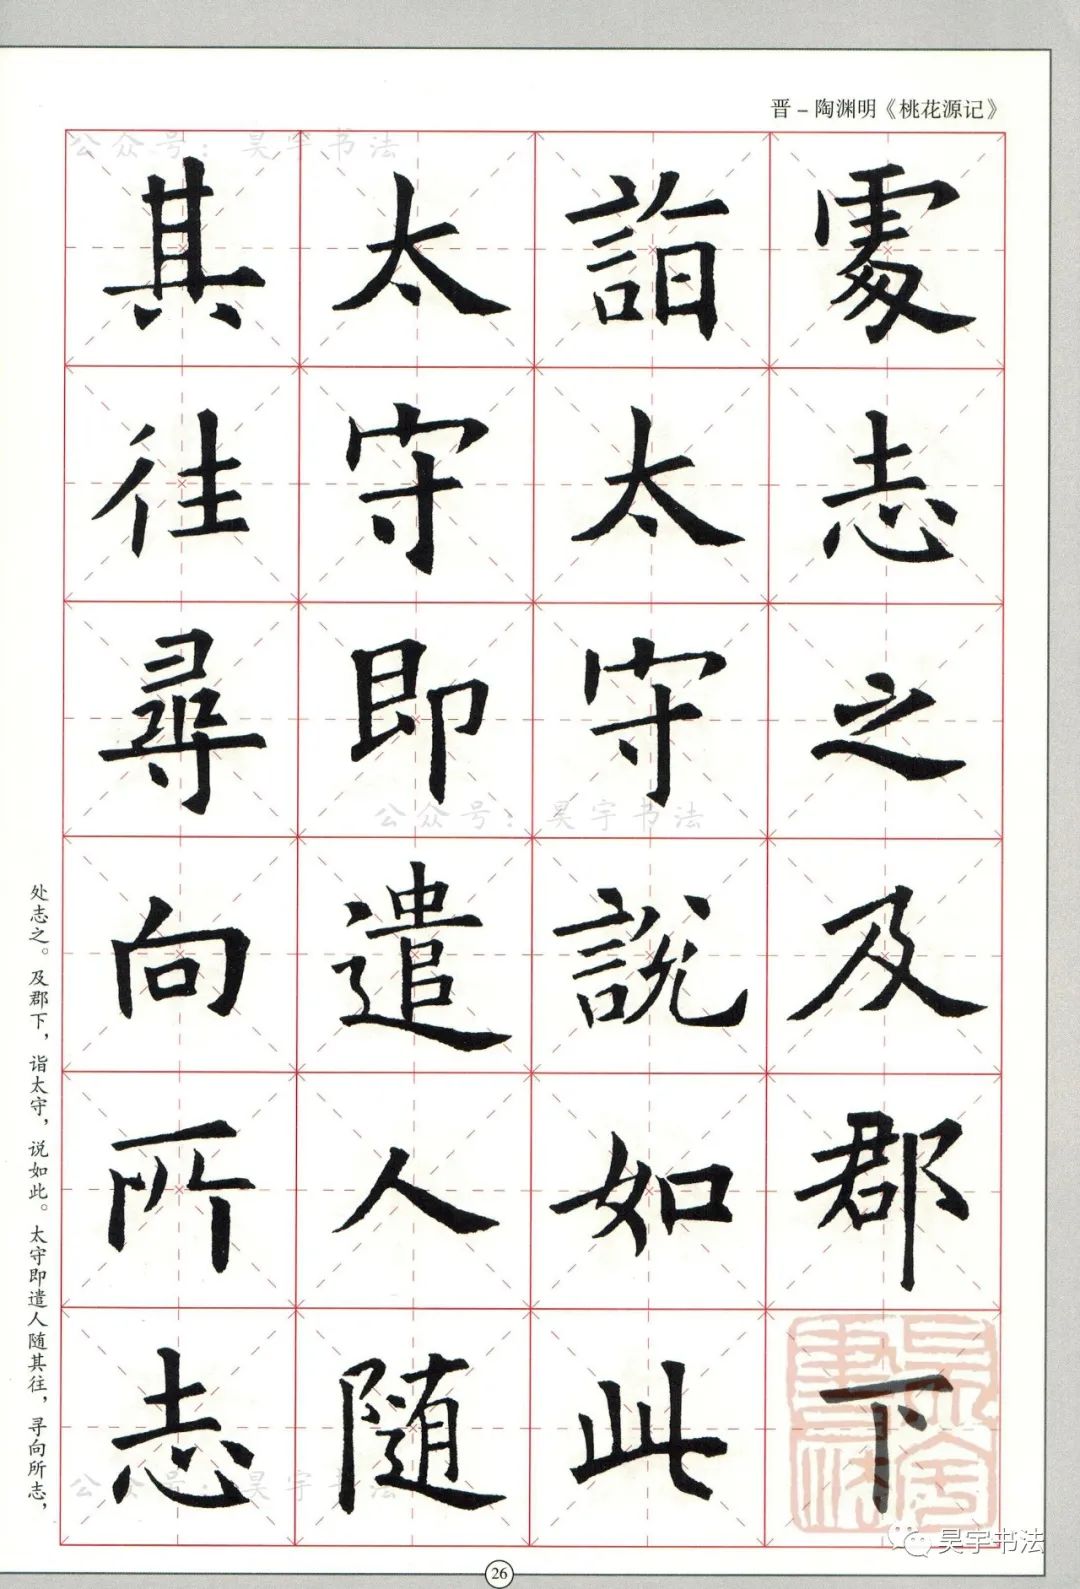 晋－陶渊明《桃花源记》
公众号：昊宇书法
處志之及郡下
詣太守說如此
太守即遣人随
其往尋向所志
公众号：昊宇书法
公众号：昊宇书法
处志之。及郡下，诣太守，说如此。太守即遣人随其往，寻向所志，
昊宇书法
26